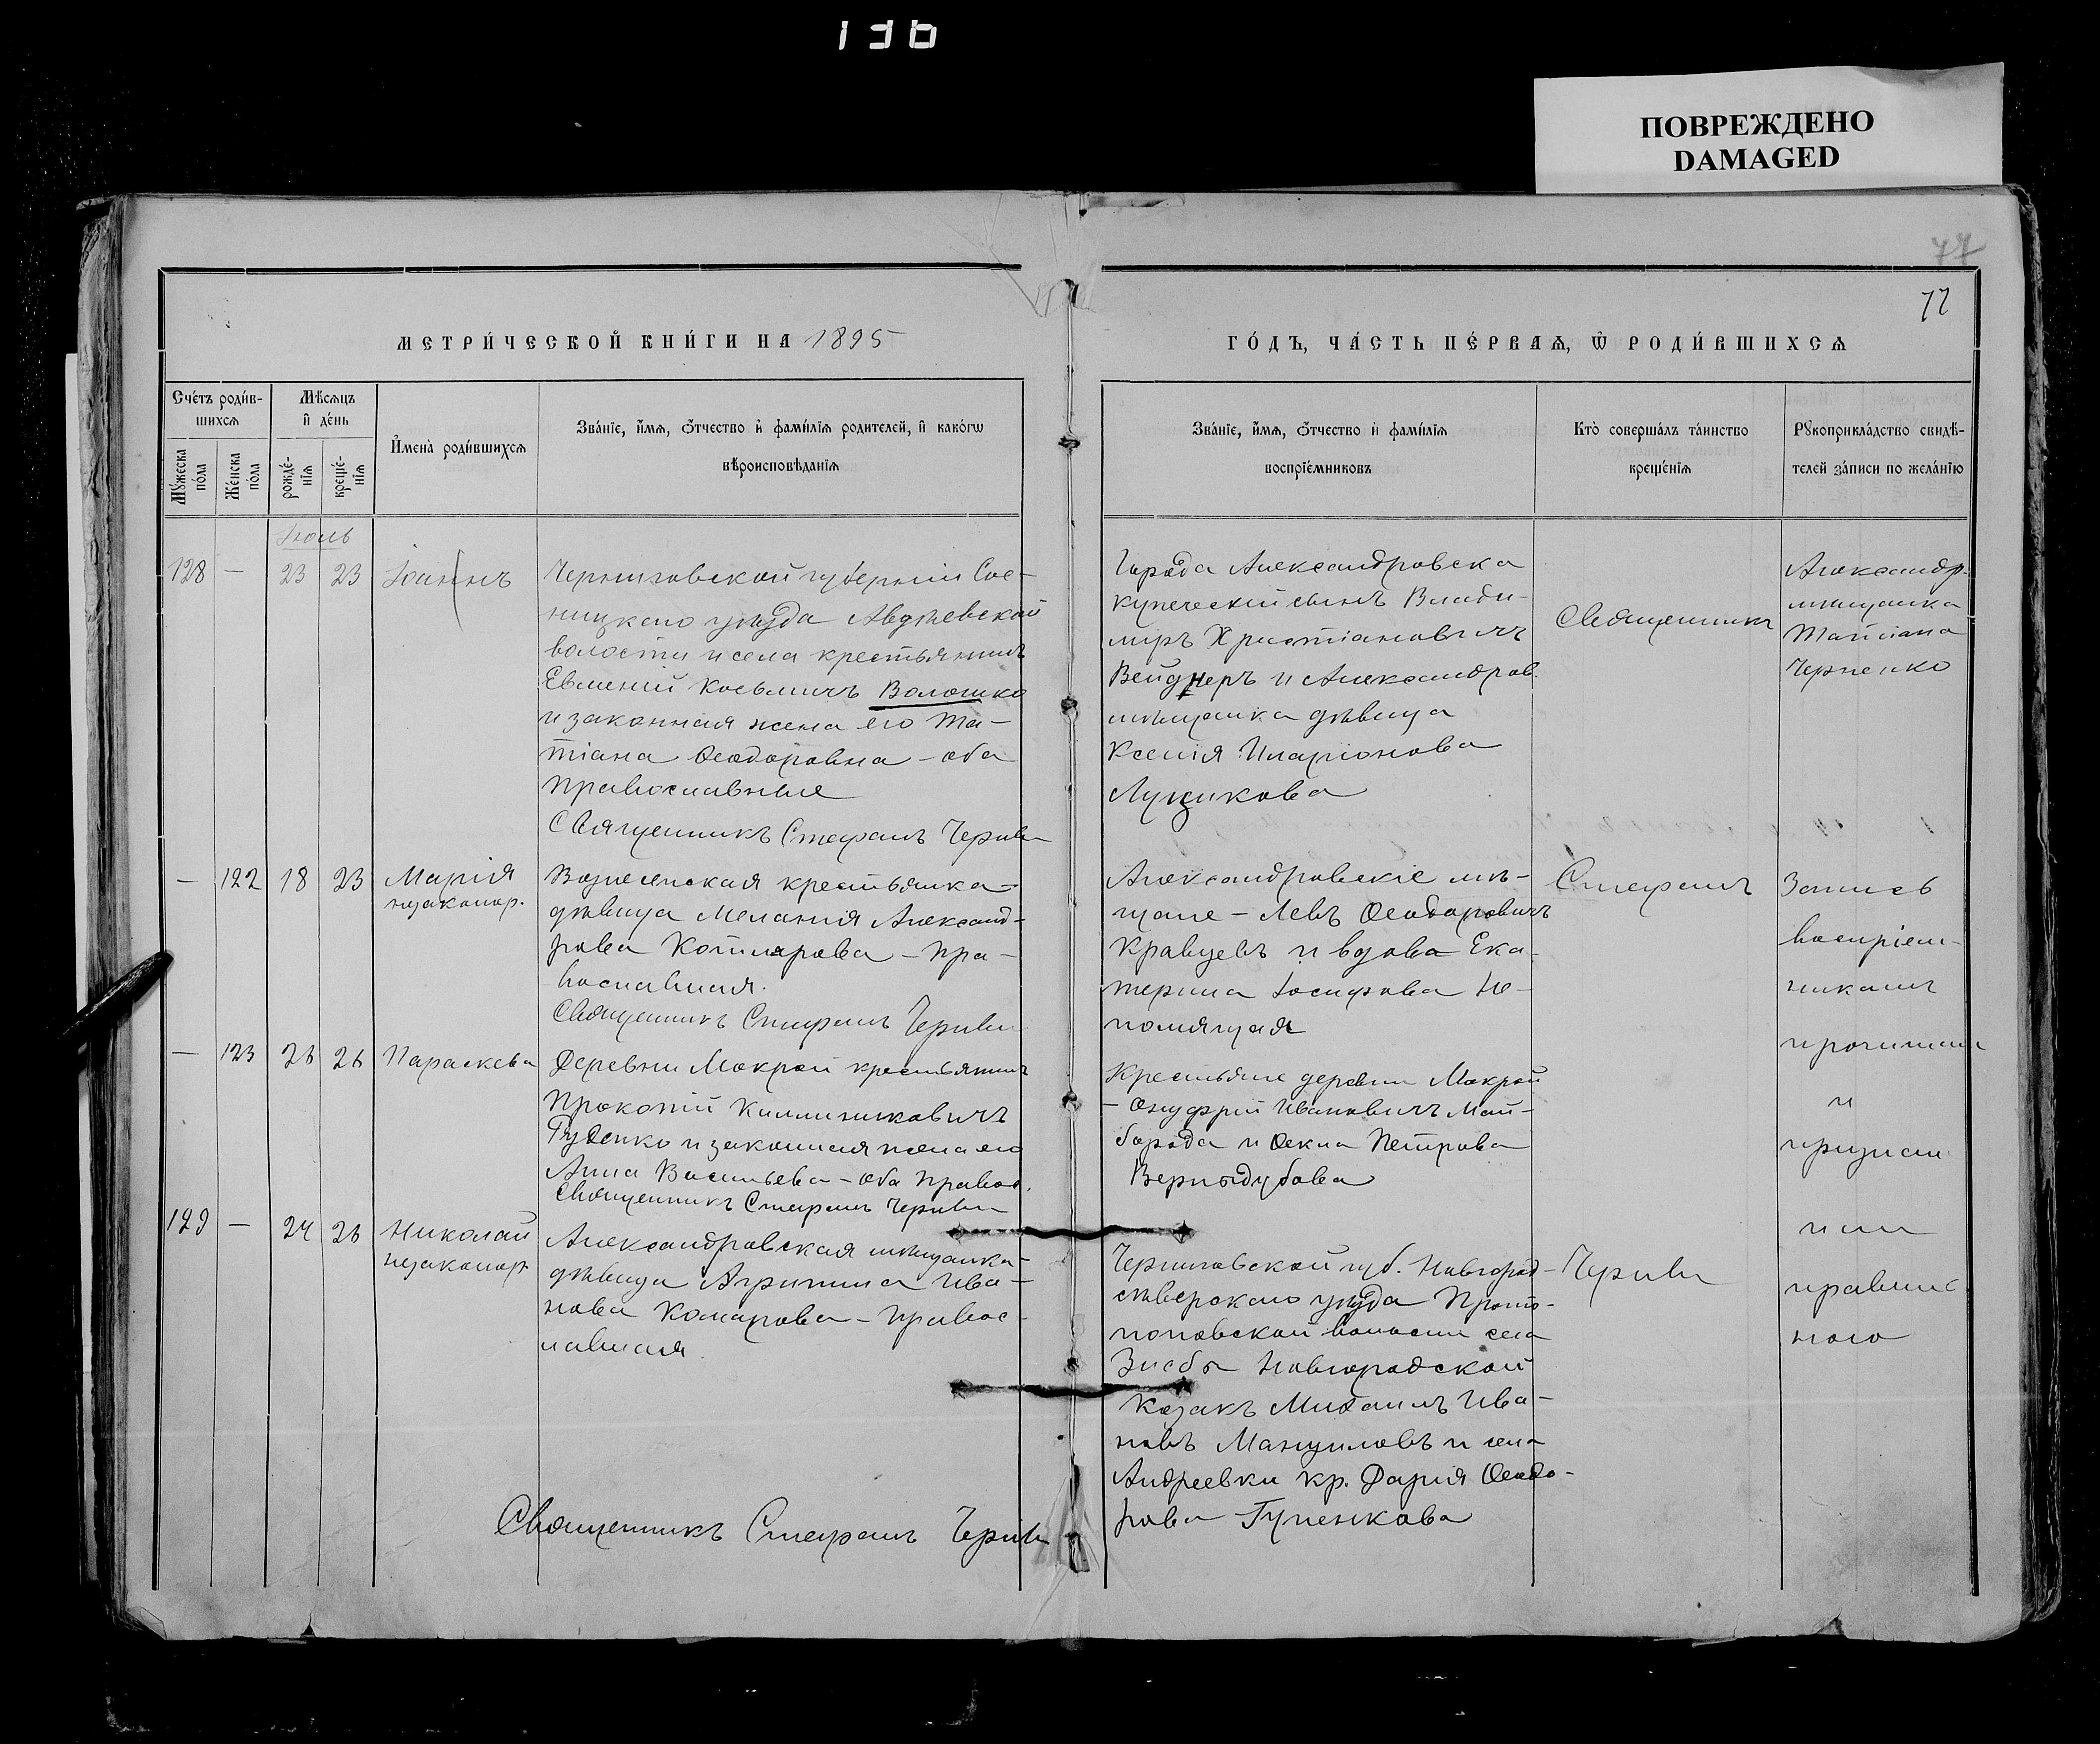 136
ПОВРЕЖДЕНО
DAMAGED
77
77
МЕТРИ́ЧЕСКОЙ КНИ́ГИ НА 1895
ГО́ДЪ, ЧА́СТЬ ПЕ́РВАѦ, Ѿ РОДИ́ВШИХСѦ
Счéтъ роди́в-
шихсѧ
Мѣ́сѧцъ
и҆ де́нь
Мꙋ́жеска
по́ла
Же́нска
по́ла
рожде́-
нїѧ
креще́-
нїѧ
И҆мена̀ роди́вшихсѧ
Зва́нїе, и҆́мѧ, ѻ҆́тчество и҆ фами́лїѧ родителей, и҆ како́гѡ
вѣроисповѣ́данїѧ
Зва́нїе, и҆́мѧ, ѻ҆́тчество и҆ фами́лїѧ
воспрїе́мниковъ
Кто̀ соверша́лъ та́инство
креще́нїѧ
Рꙋкоприкла́дство свидѣ́-
телей за́писи по жела́нїю
Іюль
128 — 23 23 Іоаннъ
Черниговской губерніи Сос-
ницкаго уѣзда Авдѣевской
волости и села крестьянинъ
Евмений Косьмичъ Волошко
и законная жена его Та-
тіана Ѳеодоровна - оба
православные
Священникъ Стефанъ
Города Александровска
купеческій сынъ Влади-
миръ Христіановичъ
Вейднеръ и Александров.
мѣщанка дѣвица
Ксенія Иларіонова
Луцикова
Священникъ
Александр.
мѣщанка
Татіана
Черненко
— 122 18 23 Марія
незаконор.
Вознесенская крестьянка-
дѣвица Меланія Александ-
рова Котлярова - пра-
вославная.
Священникъ Стефанъ
Александровскіе мѣ-
щане - Левъ Ѳеодоровичъ
Кравцевъ и вдова Ека-
терина Іосифова Не-
помящая
Стефанъ
Запись
воспріем-
никами
прочитана
и
признан
ими
правиль
ною
— 123 26 26 Параскева
Деревни Мокрой крестьянинъ
Прокопій
Руденко и законная жена его
Анна Васильева - оба правос.
Священникъ Стефанъ
Крестьяне деревни Мокрой
- Онуфрій Ивановичъ Май-
борода и Ѳекла Петрова
Вернидубова
129 — 24 26 Николай
незаконор.
Александровская мѣщанка-
дѣвица Агрипина Ива-
нова Комарова - правос-
лавная
Священникъ Стефанъ
Черниговской губ. Новгород-
сѣверскаго уѣзда Прото-
поповской волости села
Зноби Новгородской
Казакъ Михаилъ Ива-
новъ Мануиловъ и села
Андреевки кр. Дарія Ѳеодо-
рова Гупенкова